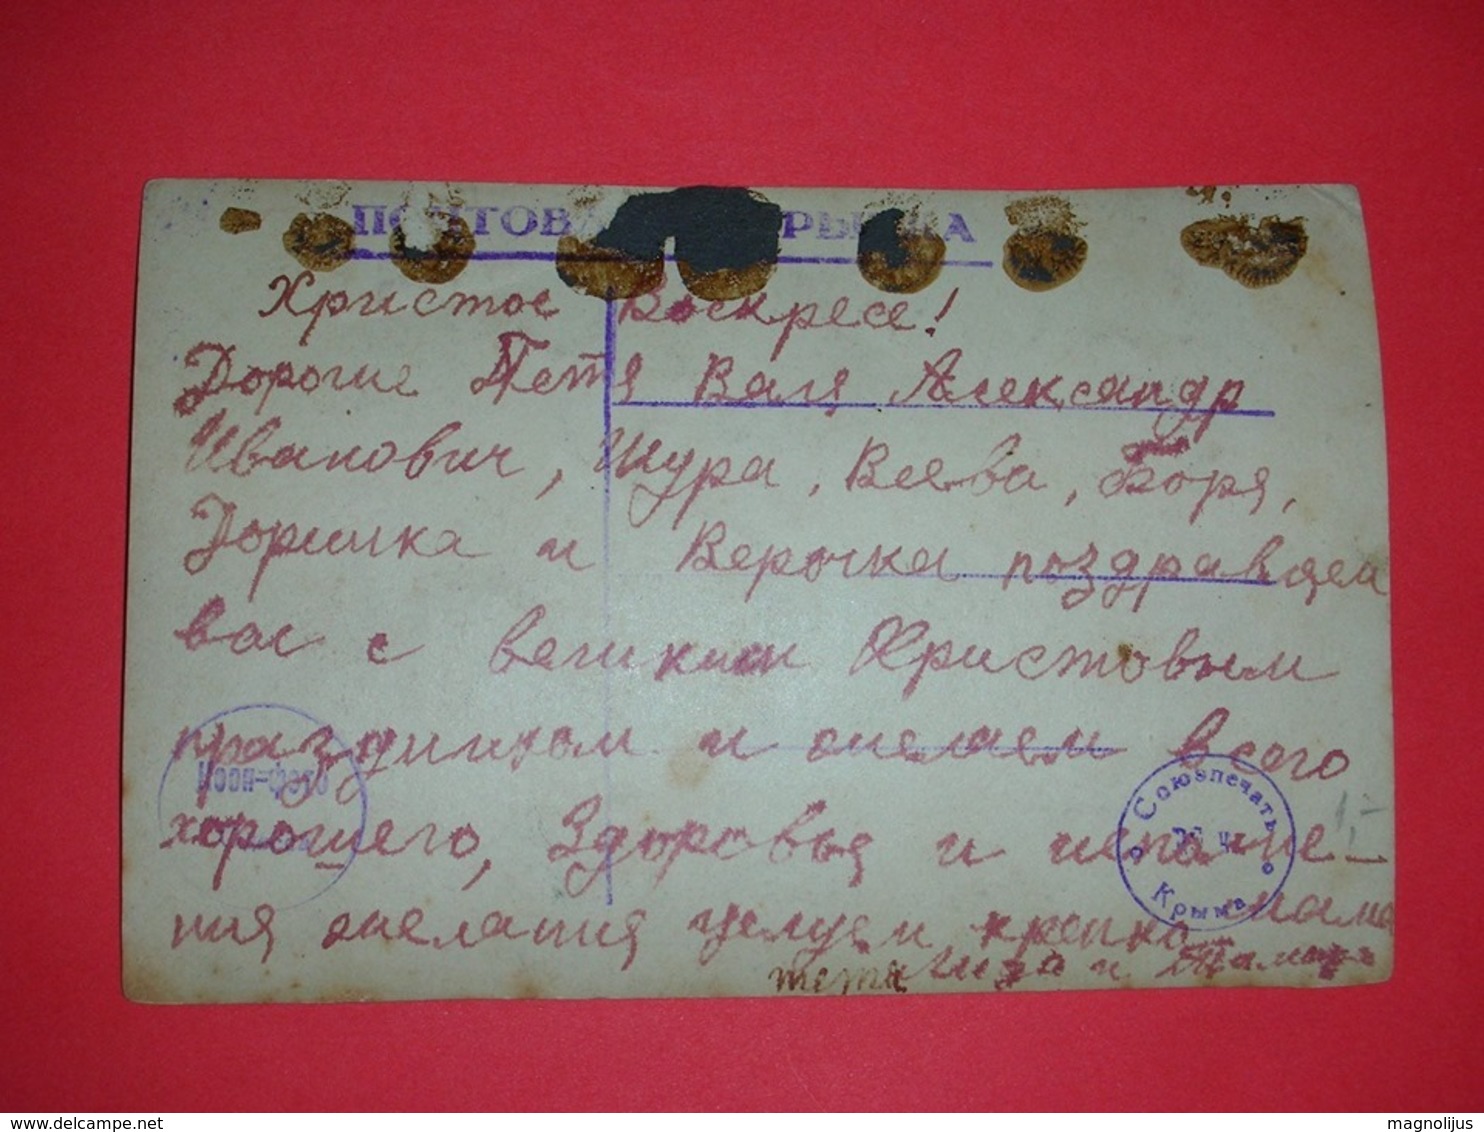 ПОЧТОВАЯ ОТКРЫТКА
Христос Воскресе!
Дорогие Петя Валя Александр
Иванович, Шура, Сева, Боря,
и Верочка поздравляем
вас с великим Христовым
праздником и желаем всего
хорошего, Здоровья и исполне-
ния желания целуем крепко мама
тетя Лиза и
фото
Союзпечать
Крыма
1,-
delcampe.net
magnolijus